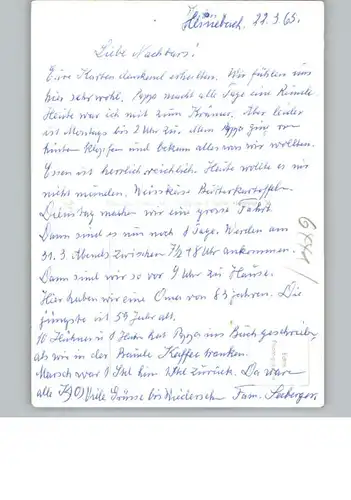 22.3.65.
Liebe Nachbars!
Eure Karten dankend erhalten. Wir fühlen uns
hier sehr wohl. Pappa macht alle Tage eine Runde
Heute war ich mit zum Krämer. Aber leider
ist Montags bis 2 Uhr zu. Mein Pappa ging von
hinten klopfen und bekam alles was wir wollten.
Essen ist herrlich, reichlich. Heute wollte es mir
nicht munden. Weisskäse Butterkartoffeln.
Dienstag machen wir eine grosse Fahrt.
Dann sind es nur noch 8 Tage. Werden am
31.3. Abends zwischen 7½ + 8 Uhr ankommen.
Dann sind wir so vor 9 Uhr zu Hause.
Hier haben wir eine Oma von 83 Jahren. Die
jüngste ist 59 Jahr alt.
10 Hühner u 1 Hahn hat Pappa ins Buch geschrieben,
als wir in der Kaffee tranken.
Marsch war 1 Std hin 1 Std zurück. Da waren
alle K.O. Viele Grüsse bis Wiedersehn Fam. Seeberger